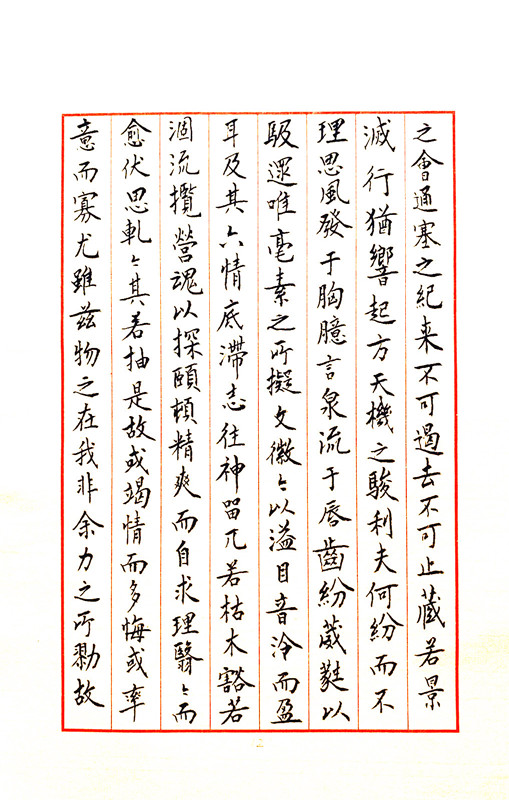 之會通塞之紀来不可遏去不可止蔵若景
滅行猶響起方天機之駿利夫何紛而不
理思風發于胸臆言泉流于唇齒紛葳蕤以
馺遝唯毫素之所擬文徽々以溢目音泠而盈
耳及其六情底滯志往神留兀若枯木豁若
涸流攬營魂以探賾頓精爽而自求理翳々而
愈伏思軋々其若抽是故或竭情而多悔或率
意而寡尤雖茲物之在我非余力之所勠故